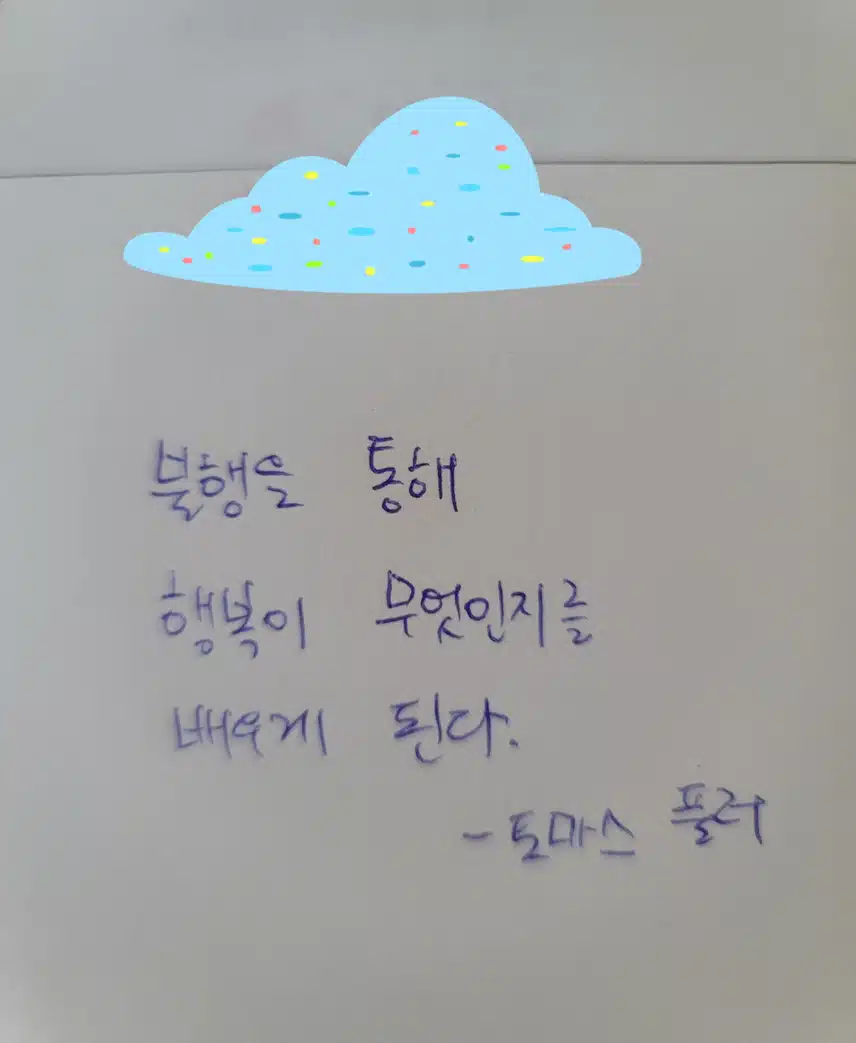 불행을 통해
행복이 무엇인지를
배우게 된다.
- 토마스 풀러